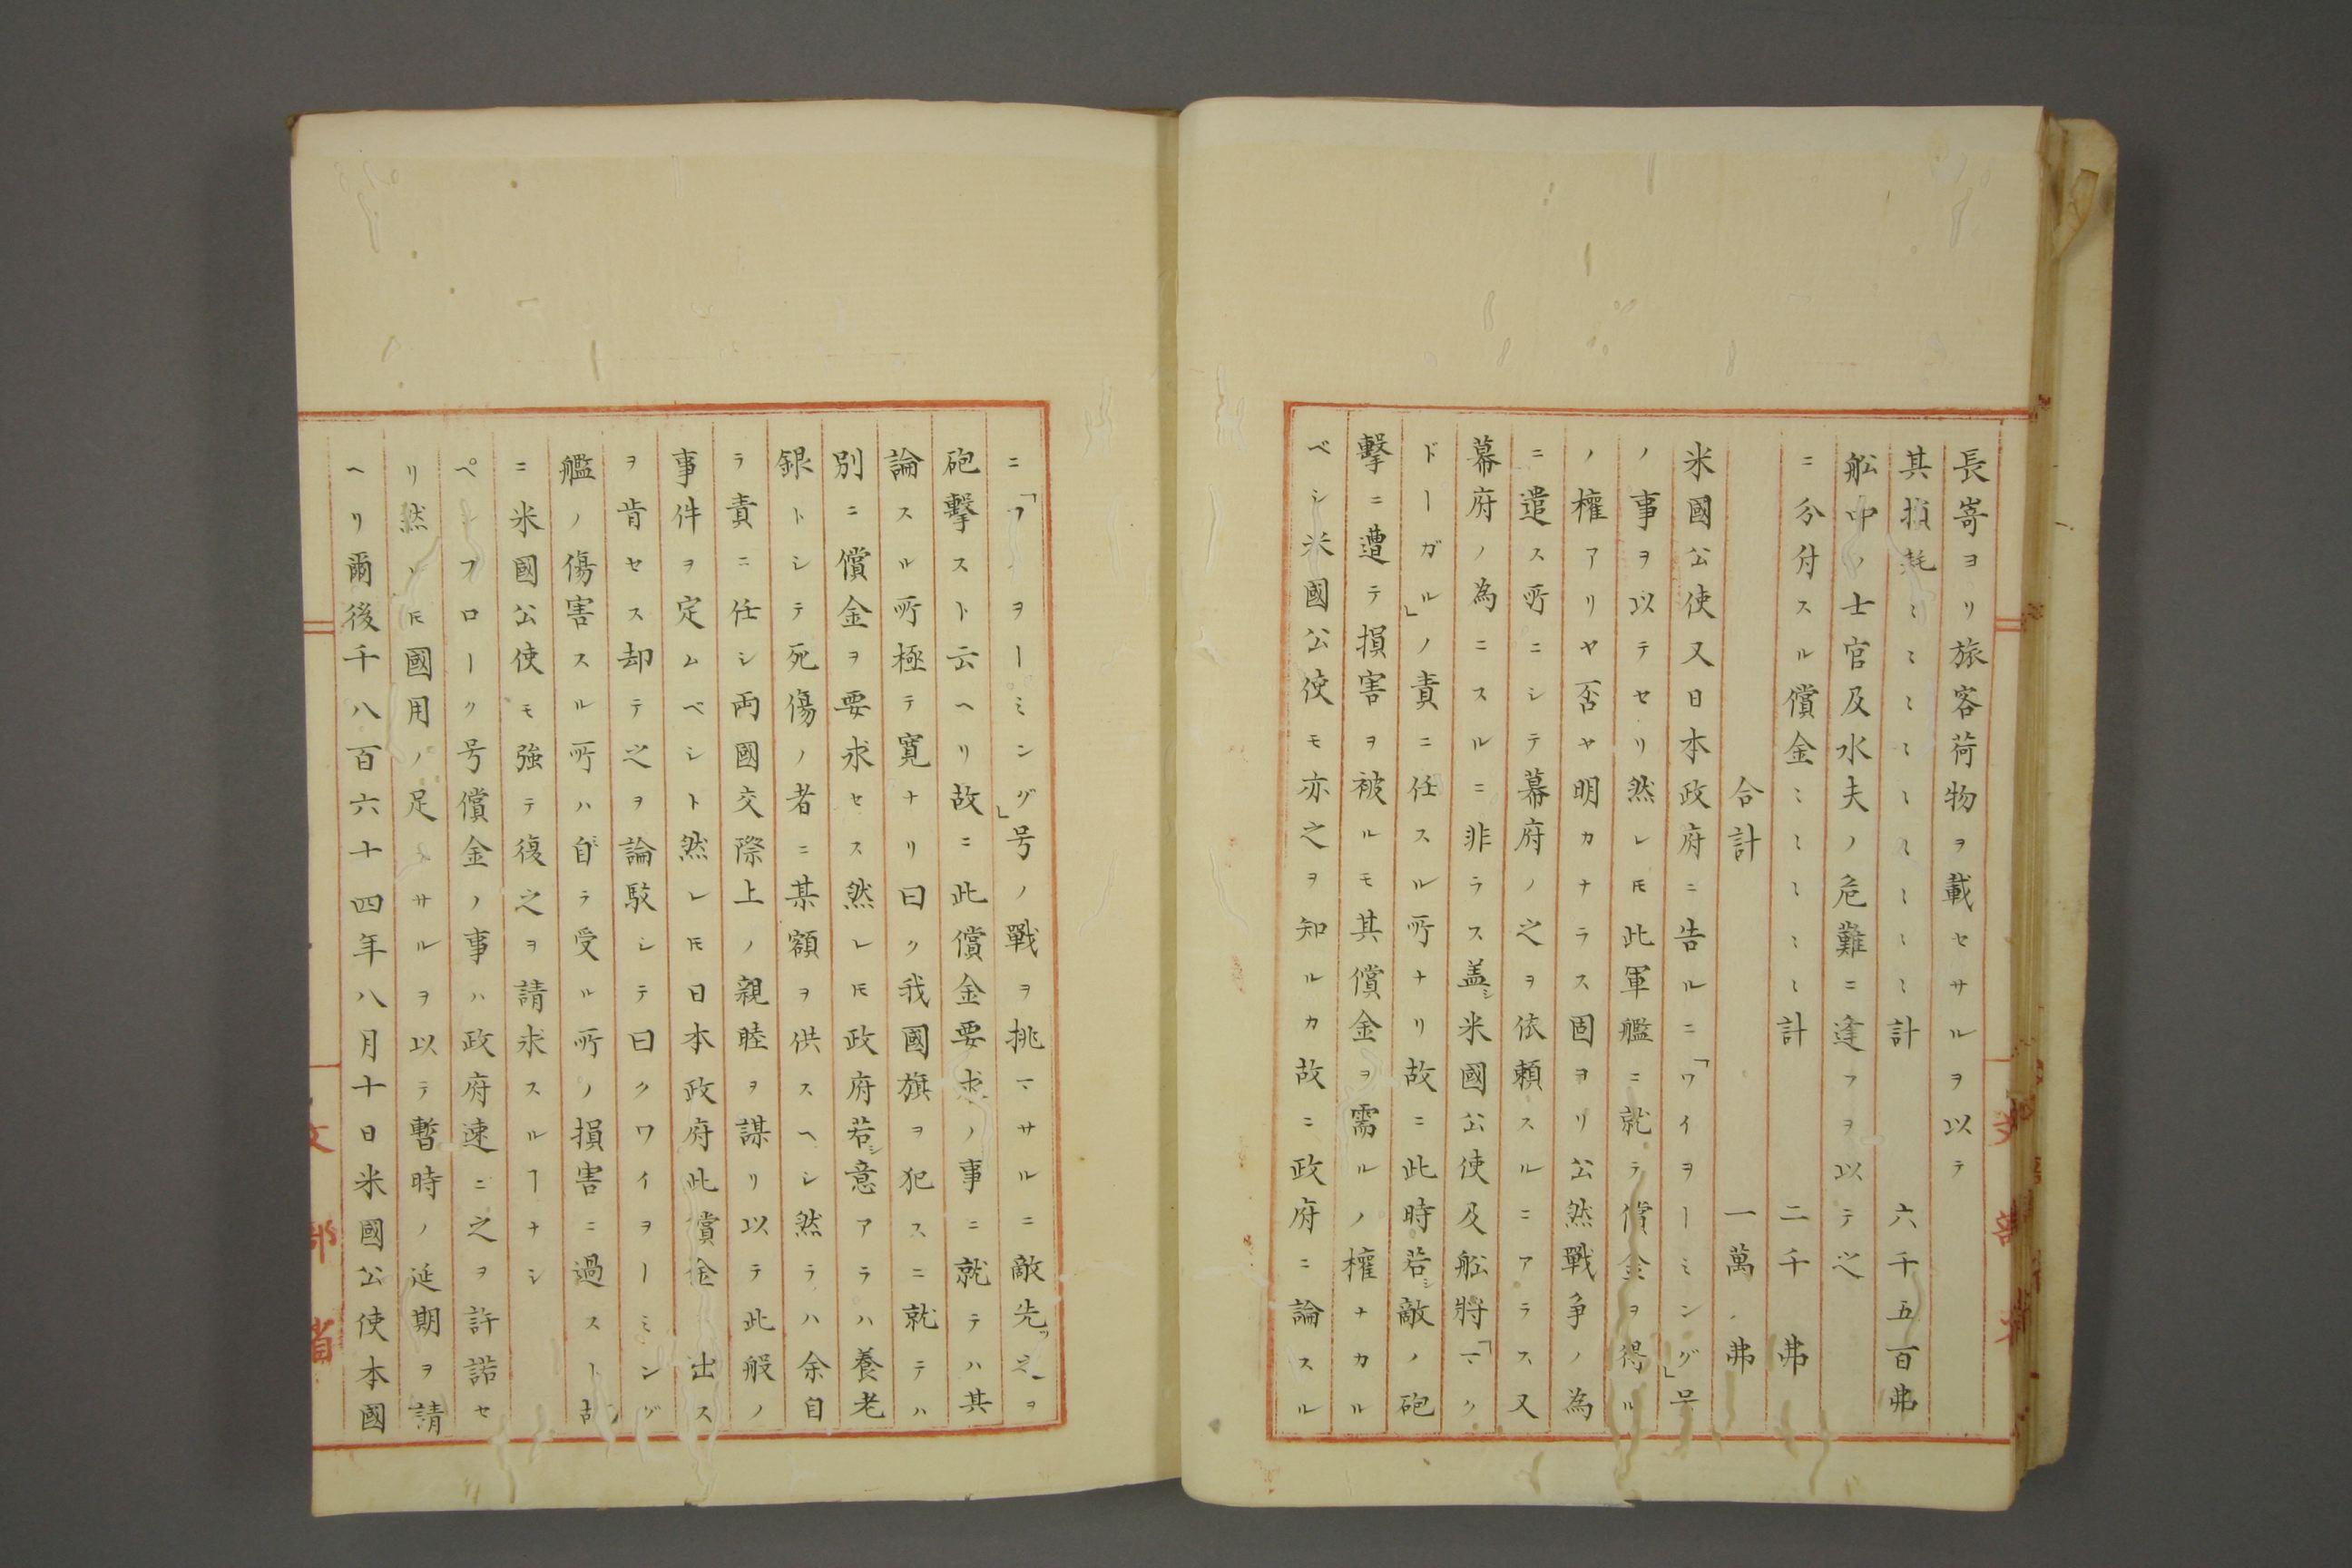 長嵜ヨリ旅客荷物ヲ載セサルヲ以テ
其損耗〻〻〻〻〻〻〻〻計　六千五百弗
舩中ノ士官及水夫ノ危難ニ逢フヲ以テ之
ニ分付スル償金〻〻〻〻〻計　二千弗
合計　一萬弗
米國公使又日本政府ニ告ルニ「ワイヲーミング」号
ノ事ヲ以テセリ然レ𪜈此軍艦ニ就テ償金ヲ得ル
ノ權アリヤ否ヤ明カナラス固ヨリ公然戰争ノ為
ニ遣ス所ニシテ幕府ノ之ヲ依頼スルニアラス又
幕府ノ為ニスルニ非ラス盖シ米國公使及舩將「マク
ドーガル」ノ責ニ任スル所ナリ故ニ此時若シ敵ノ砲
擊ニ遭テ損害ヲ被ルモ其償金ヲ需ルノ權ナカル
ベシ米國公使モ亦之ヲ知ルカ故ニ政府ニ論スル
ニ「ワイヲーミング」号ノ戰ヲ挑マサルニ敵先ツ之ヲ
砲擊スト云ヘリ故ニ此償金要求ノ事ニ就テハ其
論スル所極テ寬ナリ曰ク我國旗ヲ犯スニ就テハ
別ニ償金ヲ要求セス然レ𪜈政府若シ意アラハ養老
銀トシテ死傷ノ者ニ某額ヲ供スヘシ然ラハ余自
ラ責ニ任シ両國交際上ノ親睦ヲ謀リ以テ此般ノ
事件ヲ定ムベシト然レ𪜈日本政府此償金出ス
ヲ肯セス却テ之ヲ論駁シテ曰クワイヲーミング
艦ノ傷害スル所ハ自ラ受ル所ノ損害ニ過スト故
ニ米國公使モ強テ復之ヲ請求スルヿナシ
ペンブローク号償金ノ事ハ政府速ニ之ヲ許諾セ
リ然レ𪜈國用ノ足ラサルヲ以テ暫時ノ延期ヲ請
ヘリ爾後千八百六十四年八月十日米國公使本國
文部省